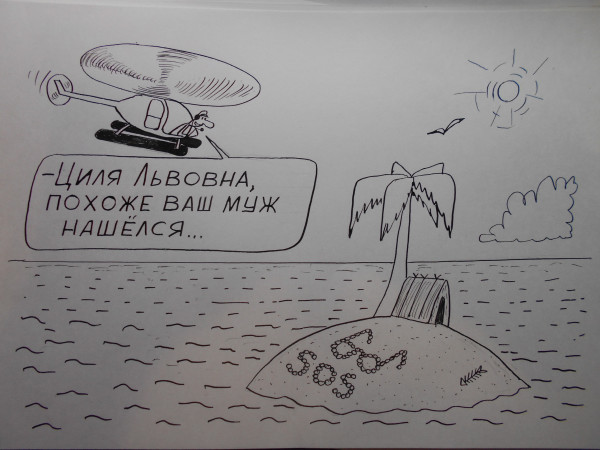 -Циля Львовна,
похоже ваш муж
нашёлся...
SOS